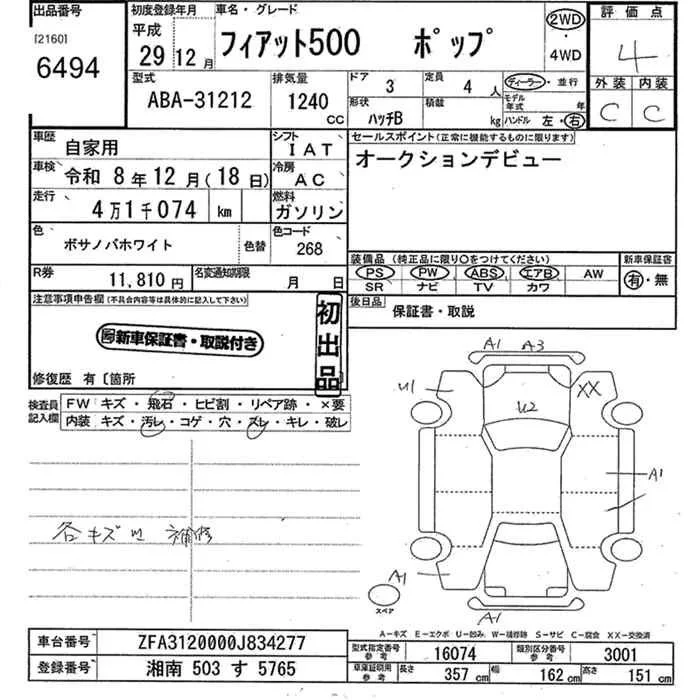 出品番号 初度登録年月 車名・グレード 評価点
[2160] 平成 2WD
6494 29 12月 フィアット500 ポップ ・ 4
4WD
型式 排気量 ドア 3 定員 4 人 ディーラー・並行 外装 内装
ABA-31212 1240 CC 形状 ハッチB 積載 kg モデル年式 年 C C
ハンドル 左・右
車歴 自家用 シフト IAT セールスポイント(正常に機能するものに限ります)
車検 令和 8年12月(18日) 冷房 AC オークションデビュー
走行 4万1千074 km 燃料 ガソリン
色 ボサノバホワイト 色替 色コード 268
装備品(純正品に限り○をつけてください) 新車保証書
R券 11,810円 名変通知期限 月 日 PS PW ABS エアB AW 有・無
SR ナビ TV カワ
注意事項申告欄(不具合内容等は具体的に記入して下さい) 初出品 後日品 保証書・取説
新車保証書・取説付き
修復歴 有〔箇所
検査員記入欄 FW キズ・飛石・ヒビ割・リペア跡・×要
内装 キズ・汚レ・コゲ・穴・スレ・キレ・破レ
各キズ凹 補修
A1 A3
U1 XX
U2
A1
A1
A1
スペア
A-キズ E-エクボ U-凹み W-補修跡 S-サビ C-腐食 XX-交換済
車台番号 ZFA3120000J834277 型式指定番号 参考 16074 類別区分番号 参考 3001
登録番号 湘南 503 す 5765 車庫証明用 参考 長さ 357 cm 幅 162 cm 高さ 151 cm